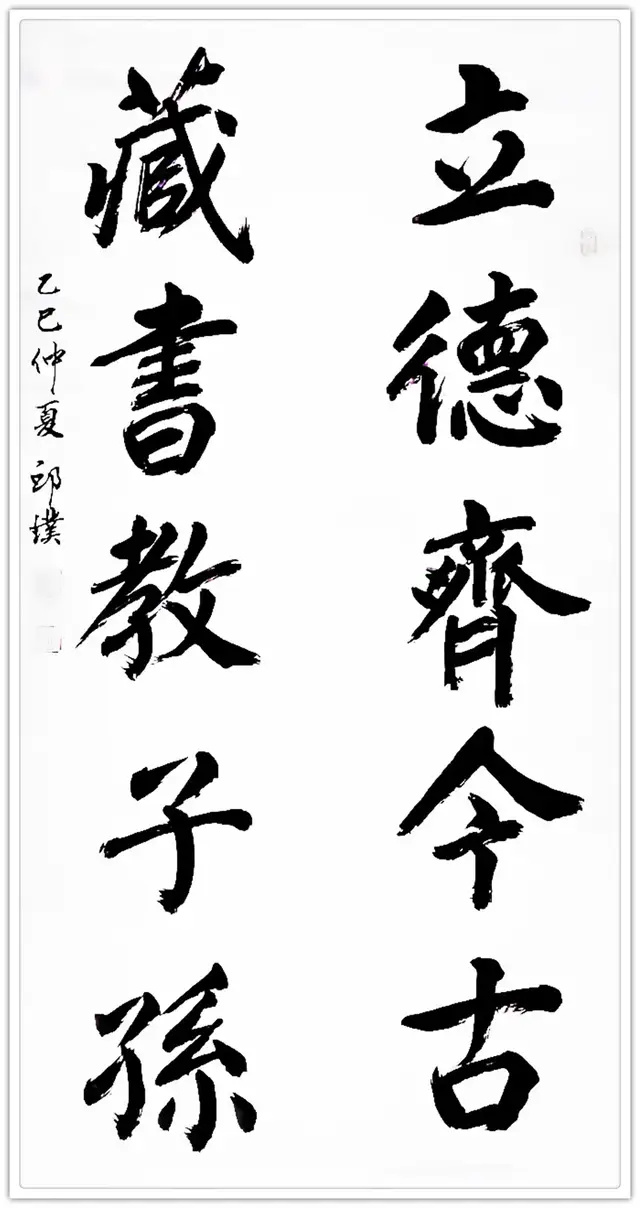 立德齊今古
藏書教子孫
乙巳仲夏 邱璞